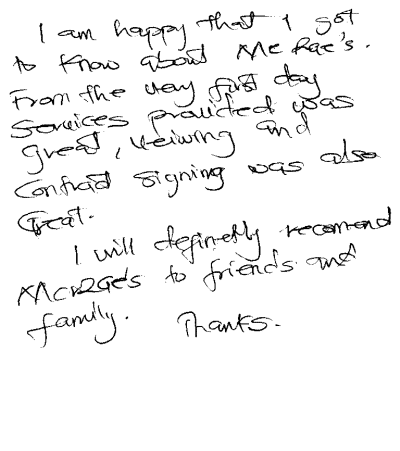 I am happy that I got
to know about McRae's.
From the very first day
Services provided was
great, veiwing and
Contract signing was also
Great.
I will definetly recomend
McRae's to friends and
family. Thanks.